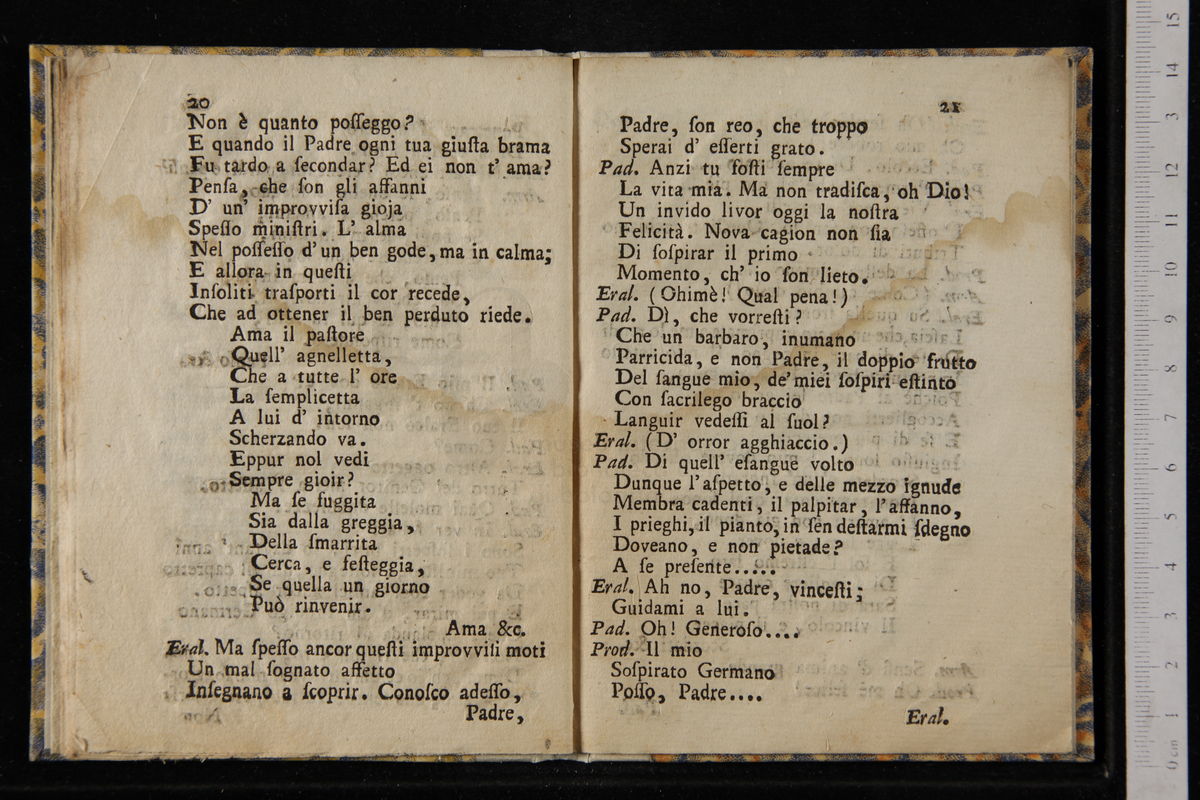 20
Non è quanto poſſeggo?
E quando il Padre ogni tua giuſta brama
Fu tardo a ſecondar? Ed ei non t' ama?
Penſa, che ſon gli affanni
D' un' improvviſa gioja
Speſſo miniſtri. L' alma
Nel poſſeſſo d' un ben gode, ma in calma;
E allora in queſti
Inſoliti traſporti il cor recede,
Che ad ottener il ben perduto riede.
Ama il paſtore
Quell' agnelletta,
Che a tutte l' ore
La ſemplicetta
A lui d' intorno
Scherzando va.
Eppur nol vedi
Sempre gioir?
Ma ſe fuggita
Sia dalla greggia,
Della ſmarrita
Cerca, e feſteggia,
Se quella un giorno
Può rinvenir.
Ama &c.
Eral. Ma ſpeſſo ancor queſti improvviſi moti
Un mal ſognato affetto
Inſegnano a ſcoprir. Conoſco adeſſo,
Padre,
21
Padre, ſon reo, che troppo
Sperai d' eſſerti grato.
Pad. Anzi tu foſti ſempre
La vita mia. Ma non tradiſca, oh Dio!
Un invido livor oggi la noſtra
Felicità. Nova cagion non ſia
Di ſoſpirar il primo
Momento, ch' io ſon lieto.
Eral. (Ohimè! Qual pena!)
Pad. Dì, che vorreſti?
Che un barbaro, inumano
Parricida, e non Padre, il doppio frutto
Del ſangue mio, de' miei ſoſpiri eſtinto
Con ſacrilego braccio
Languir vedeſſi al ſuol?
Eral. (D' orror agghiaccio.)
Pad. Di quell' eſangue volto
Dunque l' aſpetto, e delle mezzo ignude
Membra cadenti, il palpitar, l' affanno,
I prieghi, il pianto, in ſen deſtarmi ſdegno
Doveano, e non pietade?
A ſe preſente.....
Eral. Ah no, Padre, vinceſti;
Guidami a lui.
Pad. Oh! Generoſo....
Prod. Il mio
Soſpirato Germano
Poſſo, Padre....
Eral.